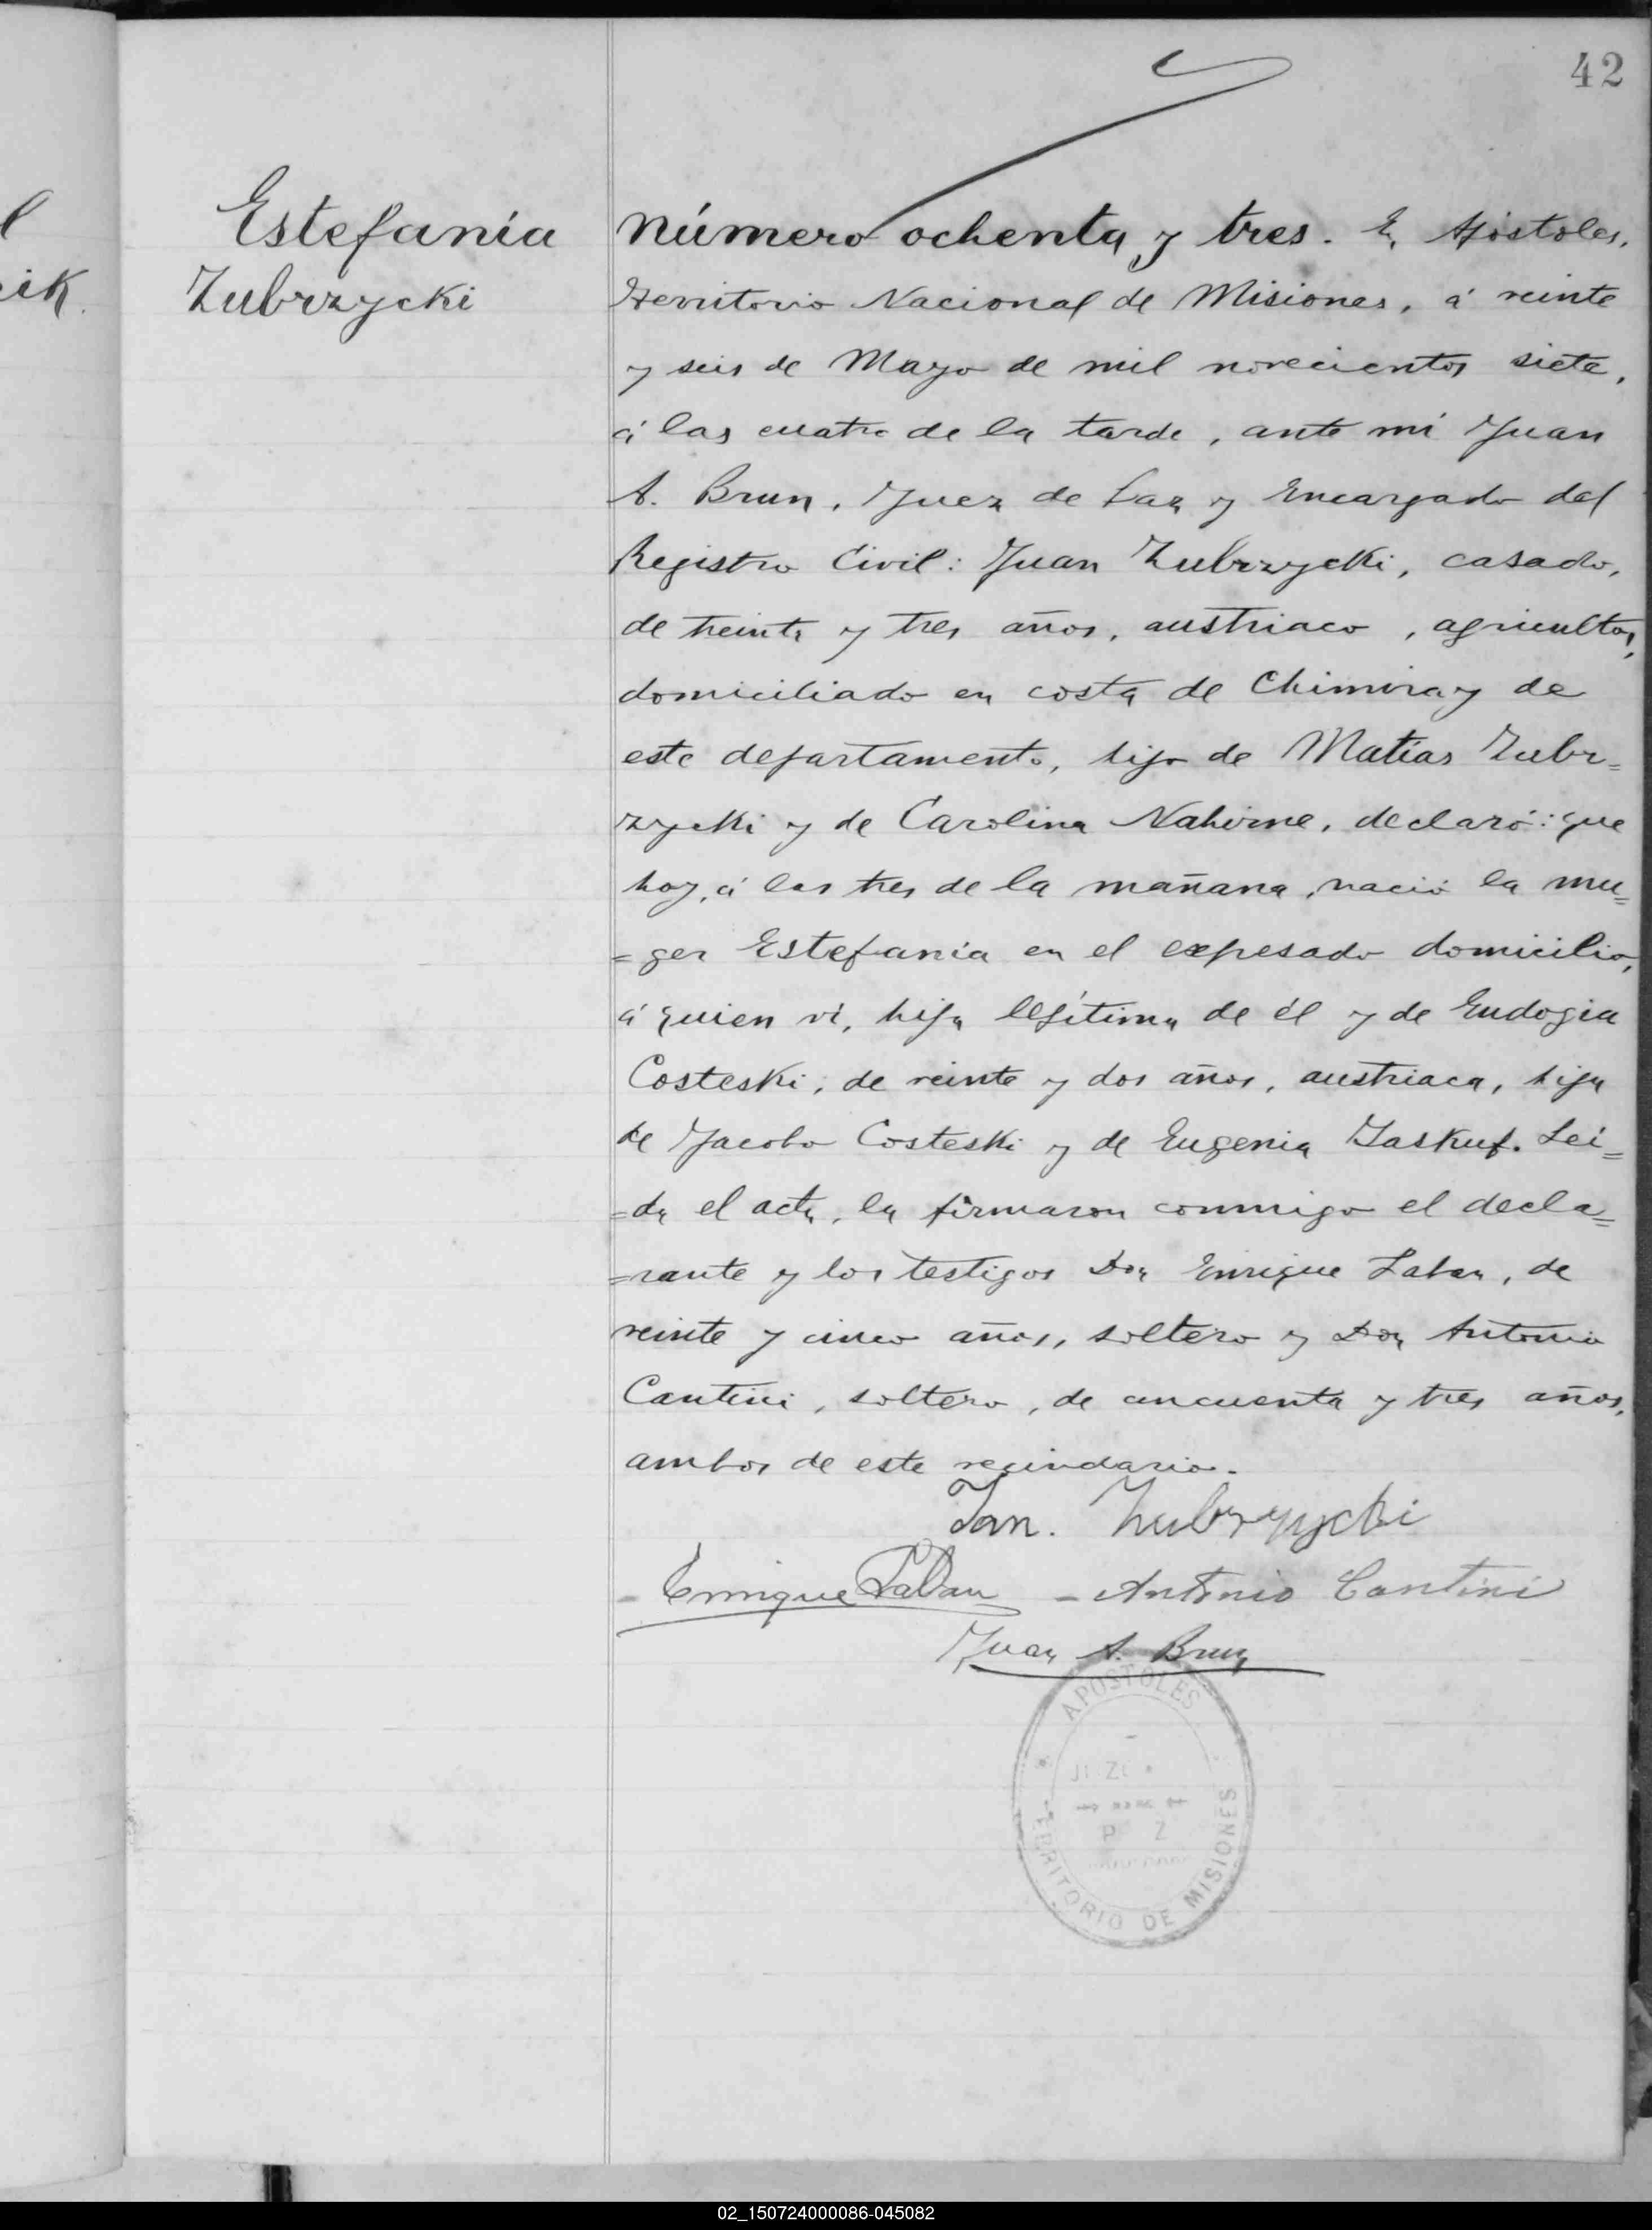 42
Estefanía
Zubrzycki
ik.
Número ochenta y tres. En Apóstoles,
Territorio Nacional de Misiones, á veinte
y seis de Mayo de mil novecientos siete,
á las cuatro de la tarde, ante mí Juan
A. Brun, Juez de Paz y Encargado del
Registro Civil: Juan Zubrzycki, casado,
de treinta y tres años, austriaco, agricultor,
domiciliado en costa de Chimiray de
este departamento, hijo de Matías Zubr=
zycki y de Carolina Nahirne, declaró: que
hoy, á las tres de la mañana, nació la mu=
=ger Estefanía en el expesado domicilio,
á quien ví, hija legítima de él y de Eudogia
Costeski, de veinte y dos años, austriaca, hija
de Jacobo Costeski y de Eugenia Jaskuf. Leí=
=da el acta, la firmaron conmigo el decla=
=rante y los testigos Don Enrique Laban, de
veinte y cinco años, soltero y Don Antonio
Cantini, soltero, de cincuenta y tres años,
ambos de este vecindario.
Jan. Zubrzycki
- Enrique Laban - Antonio Cantini
Juan A. Brun
APOSTOLES
TERRITORIO DE MISIONES
02_150724000086-045082